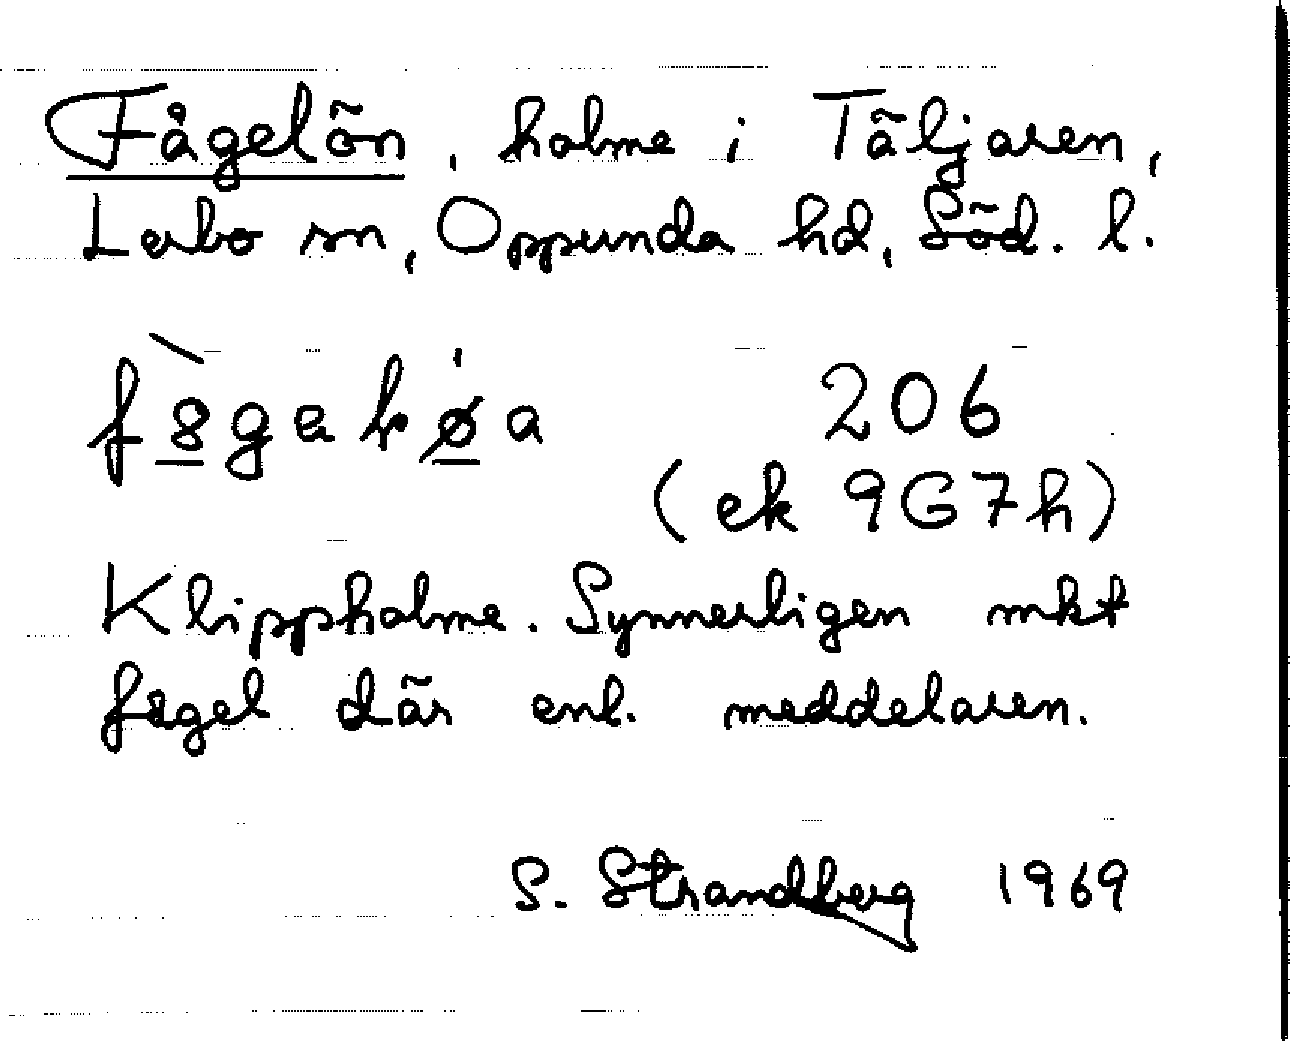 Fågelön, holme i Täljaren,
Lerbo sn, Oppunda hd, Söd. l.
206
(ek 9G7h)
Klippholme. Synnerligen mkt
fågel där enl. meddelaren.
S. Strandberg 1969